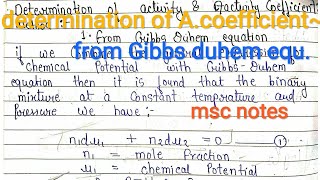 Determination of activity & Activity Coefficient
determination of A.coefficient~
1. from Gibbs Duhem equation
from Gibbs duhem equ.
if we
Chemical Potential with Gibbs-Duhem
equation then it is found that the binary
mixture at a Constant temperature and
Pressure we have :-
msc notes
n₁dμ₁ + n₂dμ₂ = 0 — ①
n₁ = mole fraction
μ₁ = chemical Potential